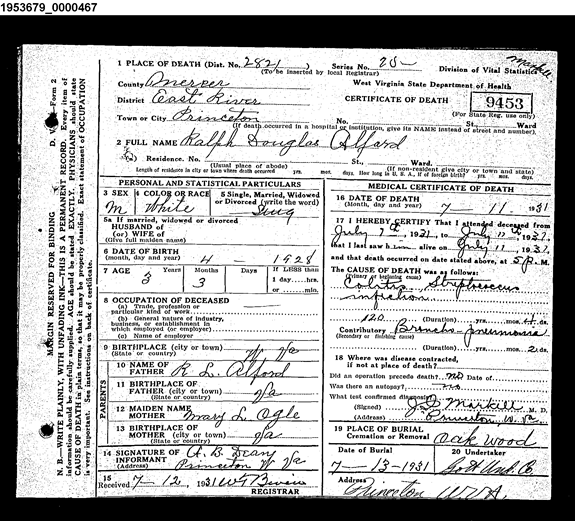 1953679_0000467
1 PLACE OF DEATH (Dist. No. 2821 Series No. 25
(To be inserted by local Registrar) Division of Vital Statistics
Markell
County Mercer West Virginia State Department of Health
District East River CERTIFICATE OF DEATH 9453
(For State Reg. use only)
Town or City Princeton No. St., Ward
(If death occurred in a hospital or institution, give its NAME instead of street and number).
2 FULL NAME Ralph Douglas Alford
Residence. No. St., Ward.
(Usual place of abode) (If non-resident give city or town and state)
Length of residence in city or town where death occurred yrs. mos. days. How long in U. S. A., if of foreign birth? yrs. mos. days
MARGIN RESERVED FOR BINDING D. V. Form 2
N. B.—WRITE PLAINLY, WITH UNFADING INK—THIS IS A PERMANENT RECORD. Every item of
information should be carefully supplied. AGE should be stated EXACTLY. PHYSICIANS should state
CAUSE OF DEATH in plain terms, so that it may be properly classified. Exact statement of OCCUPATION
is very important. See instructions on back of certificate.
PERSONAL AND STATISTICAL PARTICULARS
3 SEX 4 COLOR OR RACE 5 Single, Married, Widowed
or Divorced (write the word)
M White Sing
5a If married, widowed or divorced
HUSBAND of
(or) WIFE of
(Give full maiden name)
6 DATE OF BIRTH
(month, day and year) 4 1928
7 AGE Years Months Days If LESS than
1 day.....hrs.
or.....min.
3 3
8 OCCUPATION OF DECEASED
(a) Trade, profession or
particular kind of work
(b) General nature of industry,
business, or establishment in
which employed (or employer)
(c) Name of employer
9 BIRTHPLACE (city or town)
(State or country) W Va
PARENTS
10 NAME OF
FATHER R. L. Alford
11 BIRTHPLACE OF
FATHER (city or town)
(State or country) Va
12 MAIDEN NAME
MOTHER Mary L. Ogle
13 BIRTHPLACE OF
MOTHER (city or town)
(State or country) Va
14 SIGNATURE OF
INFORMANT
(Address) Princeton W Va
15
Received 7-12, 1931
REGISTRAR
MEDICAL CERTIFICATE OF DEATH
16 DATE OF DEATH
(Month, day and year) 7 - 11 1931
17 I HEREBY CERTIFY That I attended deceased from
July 7th, 1931, to July 11th, 1931,
that I last saw him alive on July 11, 1931,
and that death occurred on date stated above, at 5 P. M.
The CAUSE OF DEATH was as follows:
(Primary or beginning cause)
Colitis Streptococcus
(Duration) yrs. mos. 4 ds.
Contributory Broncho-pneumonia
(Secondary or finishing cause)
(Duration) yrs. mos. 2 ds.
18 Where was disease contracted,
if not at place of death?
Did an operation precede death? no Date of
Was there an autopsy? no
What test confirmed diagnosis?
(Signed) Markell M. D.
(Address) Princeton, W. Va
19 PLACE OF BURIAL
Cremation or Removal Oak Wood
Date of Burial 20 Undertaker
7-13-1931
Address
Princeton W VA.